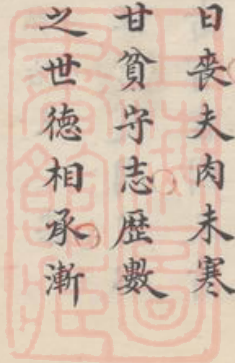 日喪夫肉未寒
甘貧守志歷數
之世德相承漸